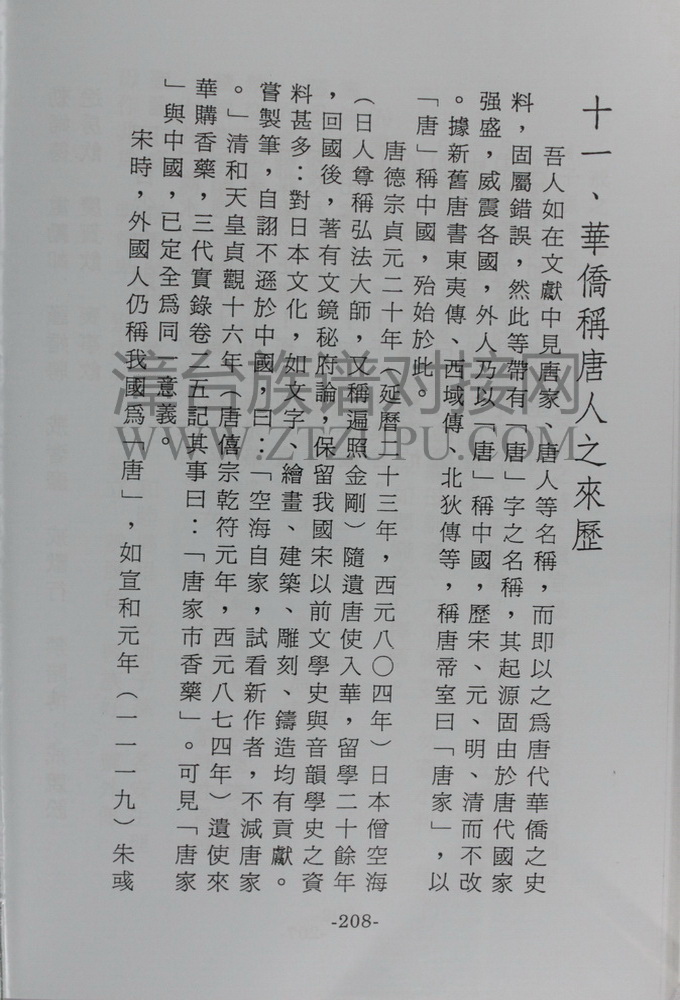 十一、華僑稱唐人之來歷
吾人如在文獻中見唐家、唐人等名稱，而即以之爲唐代華僑之史
料，固屬錯誤，然此等帶有「唐」字之名稱，其起源固由於唐代國家
强盛，威震各國，外人乃以「唐」稱中國，歷宋、元、明、清而不改
。據新舊唐書東夷傳、西域傳、北狄傳等，稱唐帝室曰「唐家」，以
「唐」稱中國，殆始於此。
唐德宗貞元二十年（延曆二十三年，西元八〇四年）日本僧空海
（日人尊稱弘法大師，又稱遍照金剛）隨遺唐使入華，留學二十餘年
，回國後，著有文鏡秘府論，保留我國宋以前文學史與音韻學史之資
料甚多：對日本文化，如文字、繪畫、建築、雕刻、鑄造均有貢獻。
嘗製筆，自詡不遜於中國，曰：「空海自家，試看新作者，不減唐家
。」清和天皇貞觀十六年（唐僖宗乾符元年，西元八七四年）遺使來
華購香藥，三代實錄卷二五記其事曰：「唐家市香藥」。可見「唐家
」與中國，已定全爲同一意義。
宋時，外國人仍稱我國爲「唐」，如宣和元年（一一一九）朱彧
-208-
漳台族谱对接网
WWW.ZTZUPU.COM